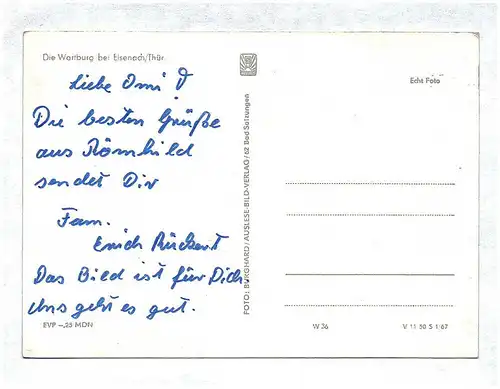 Die Wartburg bei Eisenach/Thür.
Echt Foto
Liebe Omi!
Die besten Grüße
aus Römhild
sendet Dir
Fam.
Erich Rückert
Das Bild ist für Dich.
Uns geht es gut.
FOTO: BURGHARD / AUSLESE-BILD-VERLAG / 62 Bad Salzungen
EVP –,25 MDN
W 36
V 11 50 S 1/67